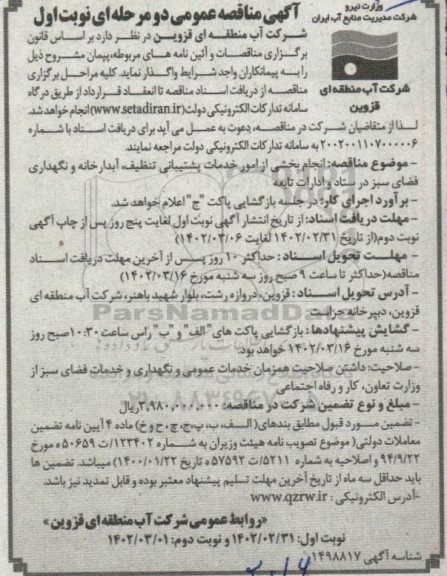 وزارت نیرو
شرکت مدیریت منابع آب ایران
شرکت آب منطقه ای
قزوین
آگهی مناقصه عمومی دو مرحله ای نوبت اول
شرکت آب منطقه ای قزوین در نظر دارد بر اساس قانون
برگزاری مناقصات و آئین نامه های مربوطه، پیمان مشروح ذیل
را به پیمانکاران واجد شرایط واگذار نماید. کلیه مراحل برگزاری
مناقصه از دریافت اسناد مناقصه تا انعقاد قرارداد از طریق درگاه
سامانه تدارکات الکترونیکی دولت (www.setadiran.ir) انجام خواهد شد.
لذا از متقاضیان شرکت در مناقصه، دعوت به عمل می آید برای دریافت اسناد با شماره
۲۰۰۲۰۰۱۱۰۷۰۰۰۰۰۶ به سامانه تدارکات الکترونیکی دولت مراجعه نمایند.
- موضوع مناقصه: انجام بخشی از امور خدمات پشتیبانی تنظیف، آبدارخانه و نگهداری
فضای سبز در ستاد و ادارات تابعه
- برآورد اجرای کار: در جلسه بازگشایی پاکت "ج" اعلام خواهد شد.
- مهلت دریافت اسناد: از تاریخ انتشار آگهی نوبت اول لغایت پنج روز پس از چاپ آگهی
نوبت دوم (از تاریخ ۱۴۰۲/۰۲/۳۱ لغایت ۱۴۰۲/۰۳/۰۶)
- مهلت تحویل اسناد: حداکثر ۱۰ روز پس از آخرین مهلت دریافت اسناد
مناقصه (حداکثر تا ساعت ۹ صبح روز سه شنبه مورخ ۱۴۰۲/۰۳/۱۶)
- آدرس تحویل اسناد: قزوین، دروازه رشت، بلوار شهید باهنر، شرکت آب منطقه ای
قزوین، دبیرخانه حراست
- گشایش پیشنهادها: بازگشایی پاکت های "الف" و "ب" راس ساعت ۱۰:۳۰ صبح روز
سه شنبه مورخ ۱۴۰۲/۰۳/۱۶ خواهد بود.
- صلاحیت: داشتن صلاحیت همزمان خدمات عمومی و نگهداری و خدمات فضای سبز از
وزارت تعاون، کار و رفاه اجتماعی
- مبلغ و نوع تضمین شرکت در مناقصه: ۳.۹۸۰.۰۰۰.۰۰۰ ریال
- تضمین مسورد قبول مطابق بندهای (الف، ب، پ، چ، ح و خ) ماده ۴ آیین نامه تضمین
معاملات دولتی (موضوع تصویب نامه هیئت وزیران به شماره ۱۲۳۴۰۲/ت ۵۰۶۵۹ ه مورخ
۹۴/۹/۲۲ و اصلاحیه به شماره ۵۲۱۱/ت ۵۷۵۹۲ ه تاریخ ۱۴۰۰/۰۱/۲۲) میباشد. تضمین ها
باید حداقل سه ماه از تاریخ آخرین مهلت تسلیم پیشنهاد معتبر بوده و قابل تمدید نیز باشد.
- آدرس الکترونیکی: www.qzrw.ir
«روابط عمومی شرکت آب منطقه ای قزوین»
نوبت اول: ۱۴۰۲/۰۲/۳۱ و نوبت دوم: ۱۴۰۲/۰۳/۰۱
شناسه آگهی ۱۴۹۸۸۱۷
ParsNamadData